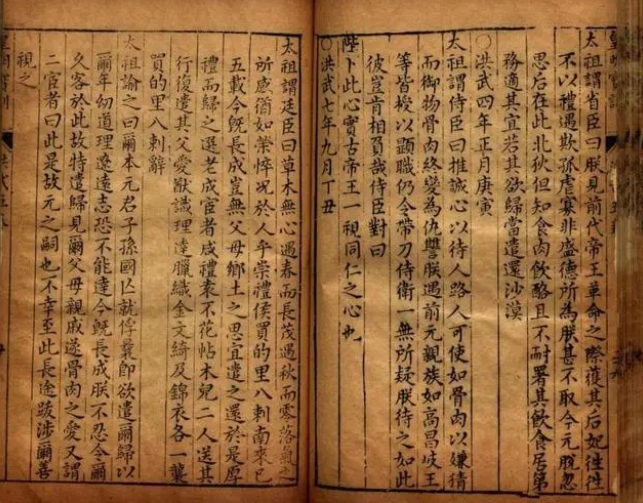 太祖謂省臣曰朕見前代帝王革命之際獲其后妃往往
不以禮遇欺孤虐寡非盛德所為朕甚不取今元脫忽
思后在此北狄但知食肉飲酪且不耐暑其飲食居第
務適其宜若其欲歸當遣還沙漠
○洪武四年正月庚寅
太祖謂侍臣曰推誠心以待人路人可使如骨肉以嫌猜
而御物骨肉終變為仇讐朕遇前元親族如高昌岐王
等皆授以顯職仍令帶刀侍衛一無所疑朕待之如此
彼豈肯相負哉侍臣對曰
陛下此心實古帝王一視同仁之心也
○洪武七年九月丁丑
太祖謂廷臣曰草木無心遇春而長茂遇秋而零落氣之
所感猶如崇悴况於人乎崇禮侯買的里八剌南來已
五載今旣長成豈無父母鄉土之思宜遣之還於是厚
禮而歸之選老成宦者咸禮袁不花帖木兒二人送其
行復遺其父愛猷識理達臘織金文綺及錦衣各一襲
買的里八剌辭
太祖諭之曰爾本元君子孫國亾就俘曩卽欲遣爾歸以
爾年幼道理遼遠志恐不能達今旣長成朕不忍令爾
久客於此故特遣歸見爾父母親戚遂骨肉之愛又謂
二宦者曰此是故元之嗣也不幸至此長途跋涉爾善
視之